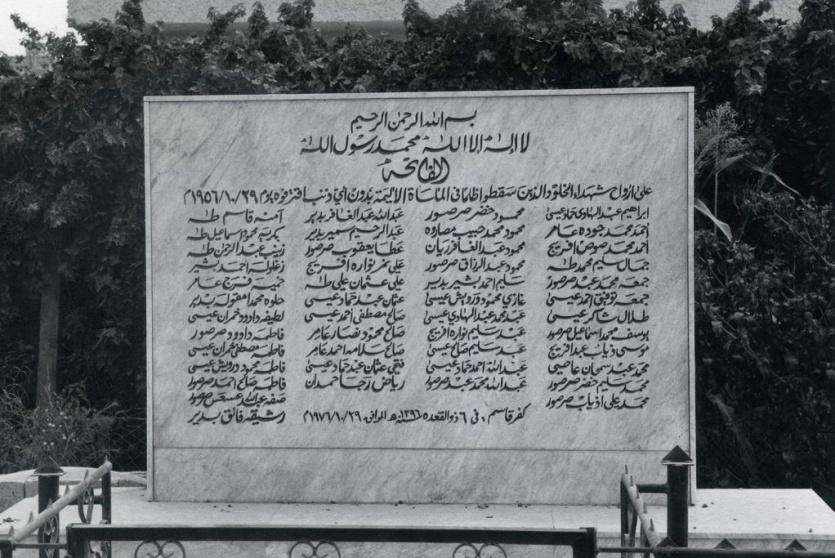 بسم الله الرحمن الرحيم
لا اله الا الله محمد رسول الله
الفاتحة
على ارواح شهداء الخلود الذين سقطوا ظلما في المأساة الاليمة بدون اي ذنب اقترفوه يوم ١٩٥٦/١٠/٢٩م
ابراهيم عبدالهادي حماد عيسى
احمد محمد جوده عامر
احمد محمد افريج
جمال سليم محمد طه
جمعه محمد عبد صرصور
جمعه توفيق احمد عيسى
طلال شاكر عيسى
يوسف محمد اسماعيل صرصور
موسى ذياب عبد افريج
محمد عبد سمحان عاصي
محمد سليم خضر صرصور
محمد علي اذياب صرصور
محمود خضر صرصور
محمود محمد حبيب مصاروه
محمود عبد الغافر ريان
محمود عبد الرزاق صرصور
سليم احمد بشير بدير
غازي محمود درويش عيسى
عبد محمد عبدالهادي عيسى
عبد سليم نواره افريج
عبد سليم صالح عيسى
عبدالله احمد حماد عيسى
عبدالله محمد عبد صرصور
عبدالله عبدالغافر بدير
عبدالرحيم سمير بدير
عطا يعقوب صرصور
علي نمر نواره افريج
علي عثمان علي طه
عثمان عبد حماد عيسى
صالح مصطفى احمد عيسى
صالح محمود نصار عامر
صالح سلامه احمد عامر
فتحي عثمان عبد حماد عيسى
رياض رجا حمدان
آمنه قاسم طه
بكريه محمود اسماعيل طه
زينب عبد الرحمن طه
زغلوله احمد بشير
خميسه فرج عامر
حلوه محمد بدير
لطيفه داوود عيسى
فاطمه داوود صرصور
فاطمه مصطفى عيسى
فاطمه محمود درويش عيسى
فاطمه صالح احمد صرصور
صفه عبدالله صرصور
رشيقه فائق بدير
كفر قاسم ، في ٦ ذو القعده سنة ١٣٩٦ هـ الموافق ١٩٧٦/١٠/٢٩م